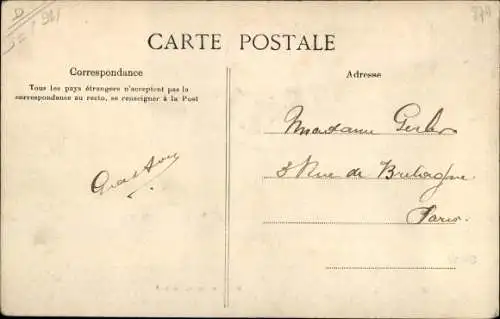 CARTE POSTALE
Correspondance
Tous les pays étrangers n'acceptent pas la
correspondance au recto, se renseigner à la Post
Adresse
Madame
3 Rue de Bretagne.
Paris.